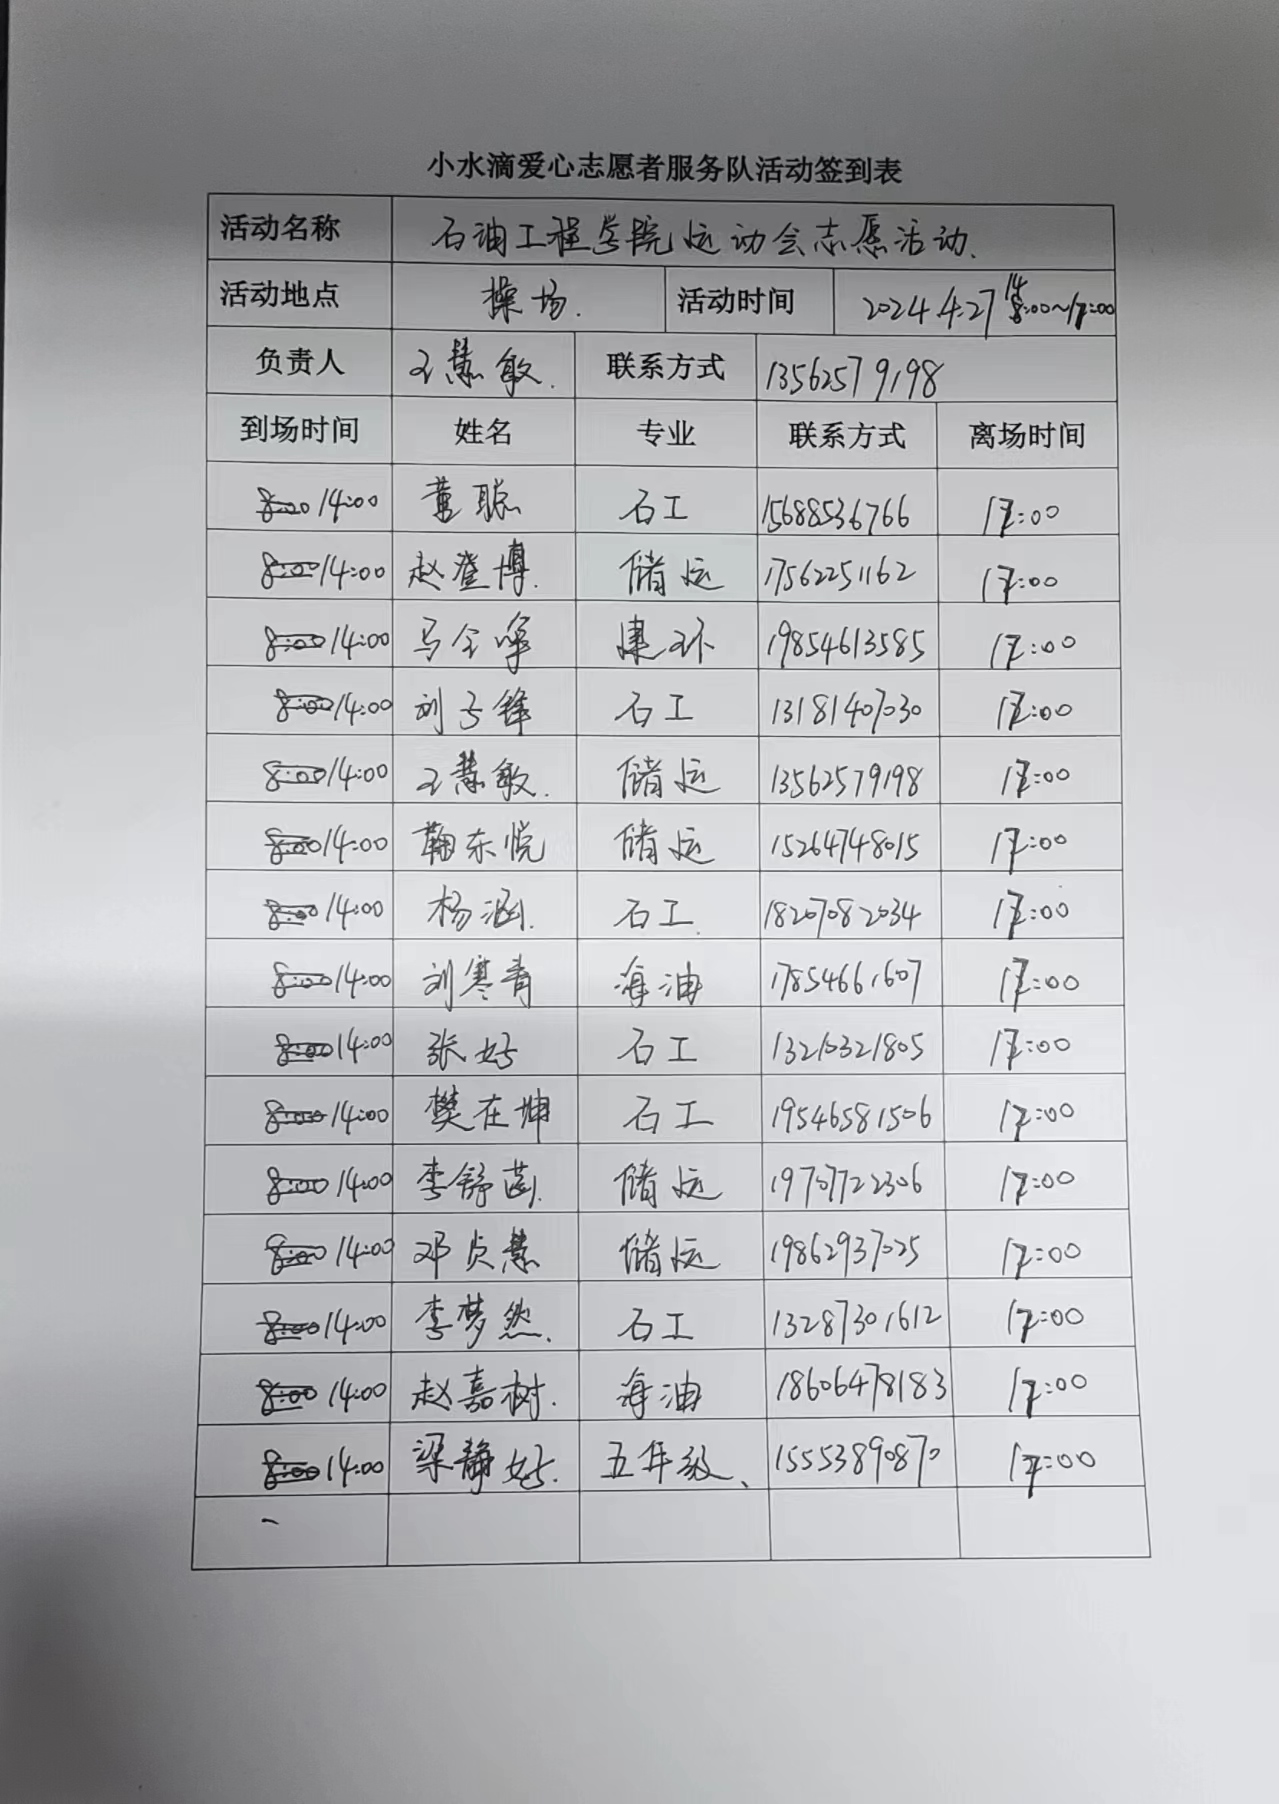 小水滴爱心志愿者服务队活动签到表
活动名称 石油工程学院运动会志愿活动.
活动地点 操场. 活动时间 2024.4.27 14:00~17:00
负责人 王慧敏. 联系方式 13562579198
到场时间 姓名 专业 联系方式 离场时间
8:00 14:00 董聪 石工 15688536766 17:00
8:00 14:00 赵登博. 储运 17562251162 17:00
8:00 14:00 马全 建环 19854613585 17:00
8:00 14:00 刘子锋 石工 13181407030 17:00
8:00 14:00 王慧敏. 储运 13562579198 17:00
8:00 14:00 鞠东悦 储运 15264748015 17:00
8:00 14:00 杨涵. 石工. 18207082034 17:00
8:00 14:00 刘寒青 海油 17854661607 17:00
8:00 14:00 张好 石工 13210321805 17:00
8:00 14:00 樊在坤 石工 19546581506 17:00
8:00 14:00 李舒茵. 储运 19707722306 17:00
8:00 14:00 邓贞慧 储运 19862937025 17:00
8:00 14:00 李梦然. 石工 13287301612 17:00
8:00 14:00 赵嘉树. 海油 18606478183 17:00
8:00 14:00 梁静好. 五年级、 15553890870 17:00